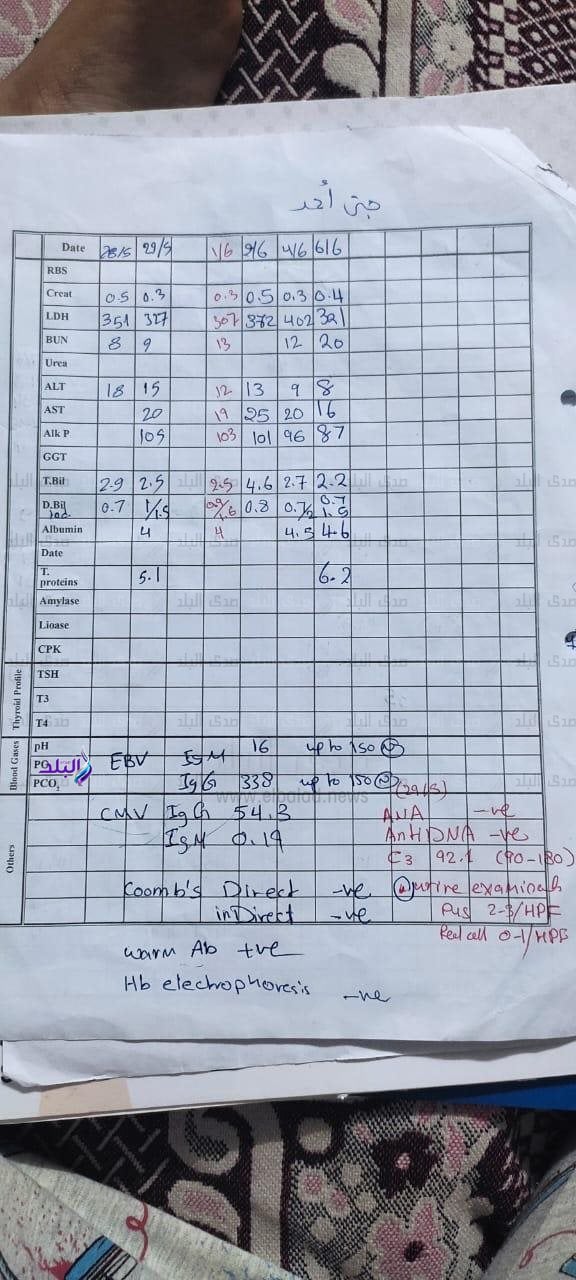 Date 28/5 29/5 1/6 2/6 4/6 6/6
RBS
Creat 0.5 0.3 0.3 0.5 0.3 0.4
LDH 351 327 307 372 402 321
BUN 8 9 13 12 20
Urea
ALT 18 15 12 13 9 8
AST 20 19 25 20 16
Alk P 105 103 101 96 87
GGT
T.Bil 2.9 2.5 2.5 4.6 2.7 2.2
D.Bil 0.7 0.8 0.7
Albumin 4 4 4.5 4.6
Date
T. proteins 5.1 6.2
Amylase
Lioase
CPK
Thyroid Profile
TSH
T3
T4
Blood Gases
pH
PCO₂
EBV IgM 16 up to 150
IgG 338 up to 150
(29/5)
Others
CMV IgG 54.3
IgM 0.19
ANA -ve
Anti DNA -ve
C3 92.1 (90-180)
Coomb's Direct -ve
inDirect -ve
urine
Pus 2-3/HPF
Red cell 0-1/HPF
warm Ab +ve
Hb electrophoresis -ve
صدى البلد
www.elbalad.news